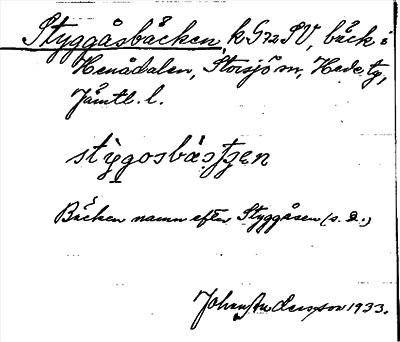 Styggåsbäcken, k G72 SV, bäck i
Henådalen, Storsjö sn, Hede tg,
Jämtl. l.
stỳgosbästʃen
Bäcken namn efter Styggåsen (s. d.)
Johan Andersson 1933.